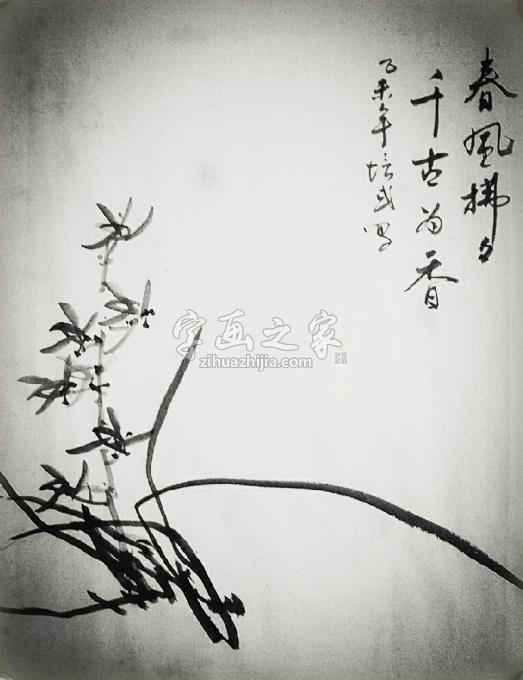 春风拂
千古为香
乙未年培武写
字画之家
zihuazhijia.com